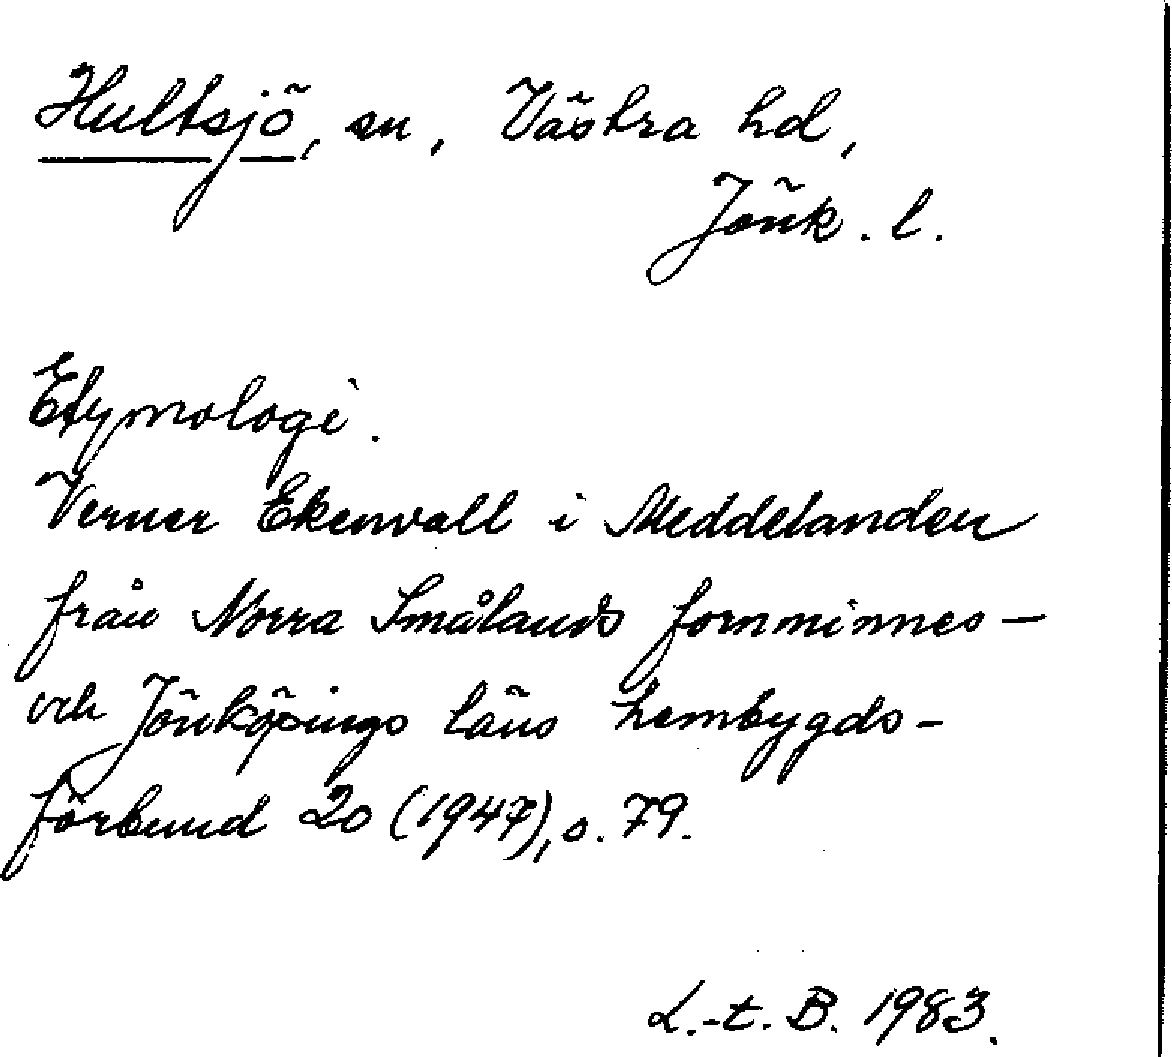 Hultsjö, sn, Västra hd,
Jönk. l.
Etymologi.
Verner Ekenvall i Meddelanden
från Norra Smålands fornminnes-
och Jönköpings läns hembygds-
förbund 20 (1947), s. 79.
L.-t. B. 1983.